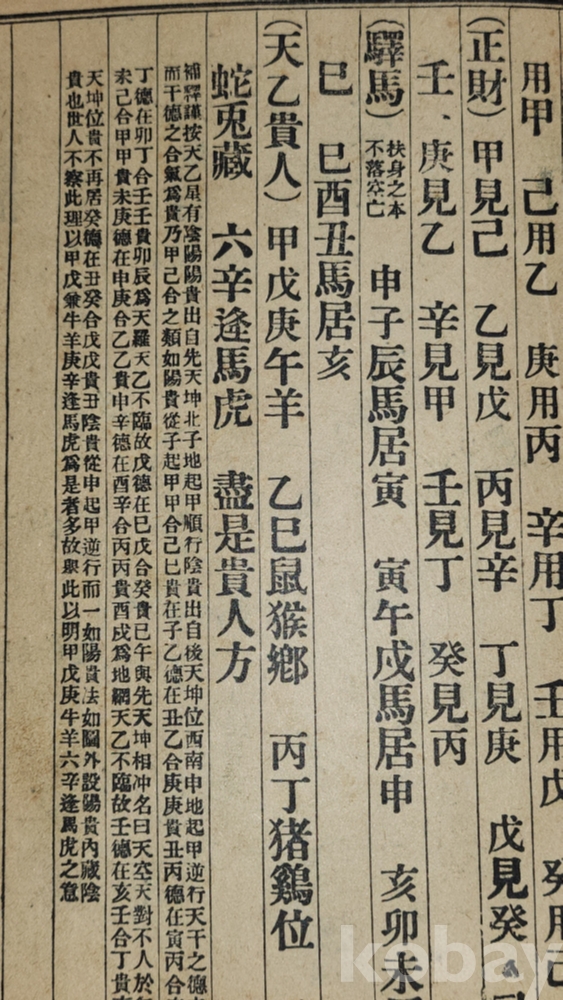 用甲　己用乙　庚用丙　辛用丁　壬用戊　癸用己
（正財）甲見己　乙見戊　丙見辛　丁見庚　戊見癸
壬、庚見乙　辛見甲　壬見丁　癸見丙
（驛馬）扶身之本不落空亡　申子辰馬居寅　寅午戍馬居申　亥卯未
巳　巳酉丑馬居亥
（天乙貴人）甲戊庚午羊　乙巳鼠猴鄉　丙丁猪鷄位
蛇兎藏　六辛逢馬虎　盡是貴人方
補釋謹按天乙星有陰陽陽貴出自先天坤北子地起甲順行陰貴出自後天坤位西南申地起甲逆行天干之德
而干德之合氣爲貴乃甲己合之類如陽貴從子起甲甲合己巳貴在子乙德在丑乙合庚庚貴丑丙德在寅丙合
丁德在卯丁合壬壬貴卯辰爲天羅天乙不臨故戊德在巳戊合癸癸貴巳午與先天坤相冲名曰天空天對不人於
未己合甲甲貴未庚德在申庚合乙乙貴申辛德在酉辛合丙丙貴酉戍爲地網天乙不臨故壬德在亥壬合丁貴
天坤位貴不再居癸德在丑癸合戊戊貴丑陰貴從申起甲逆行而一如陽貴法如圖外設陽貴內藏陰
貴也世人不察此理以甲戊兼牛羊庚辛逢馬虎爲是者多故照此以明甲戊庚牛羊六辛逢馬虎之意
kebay